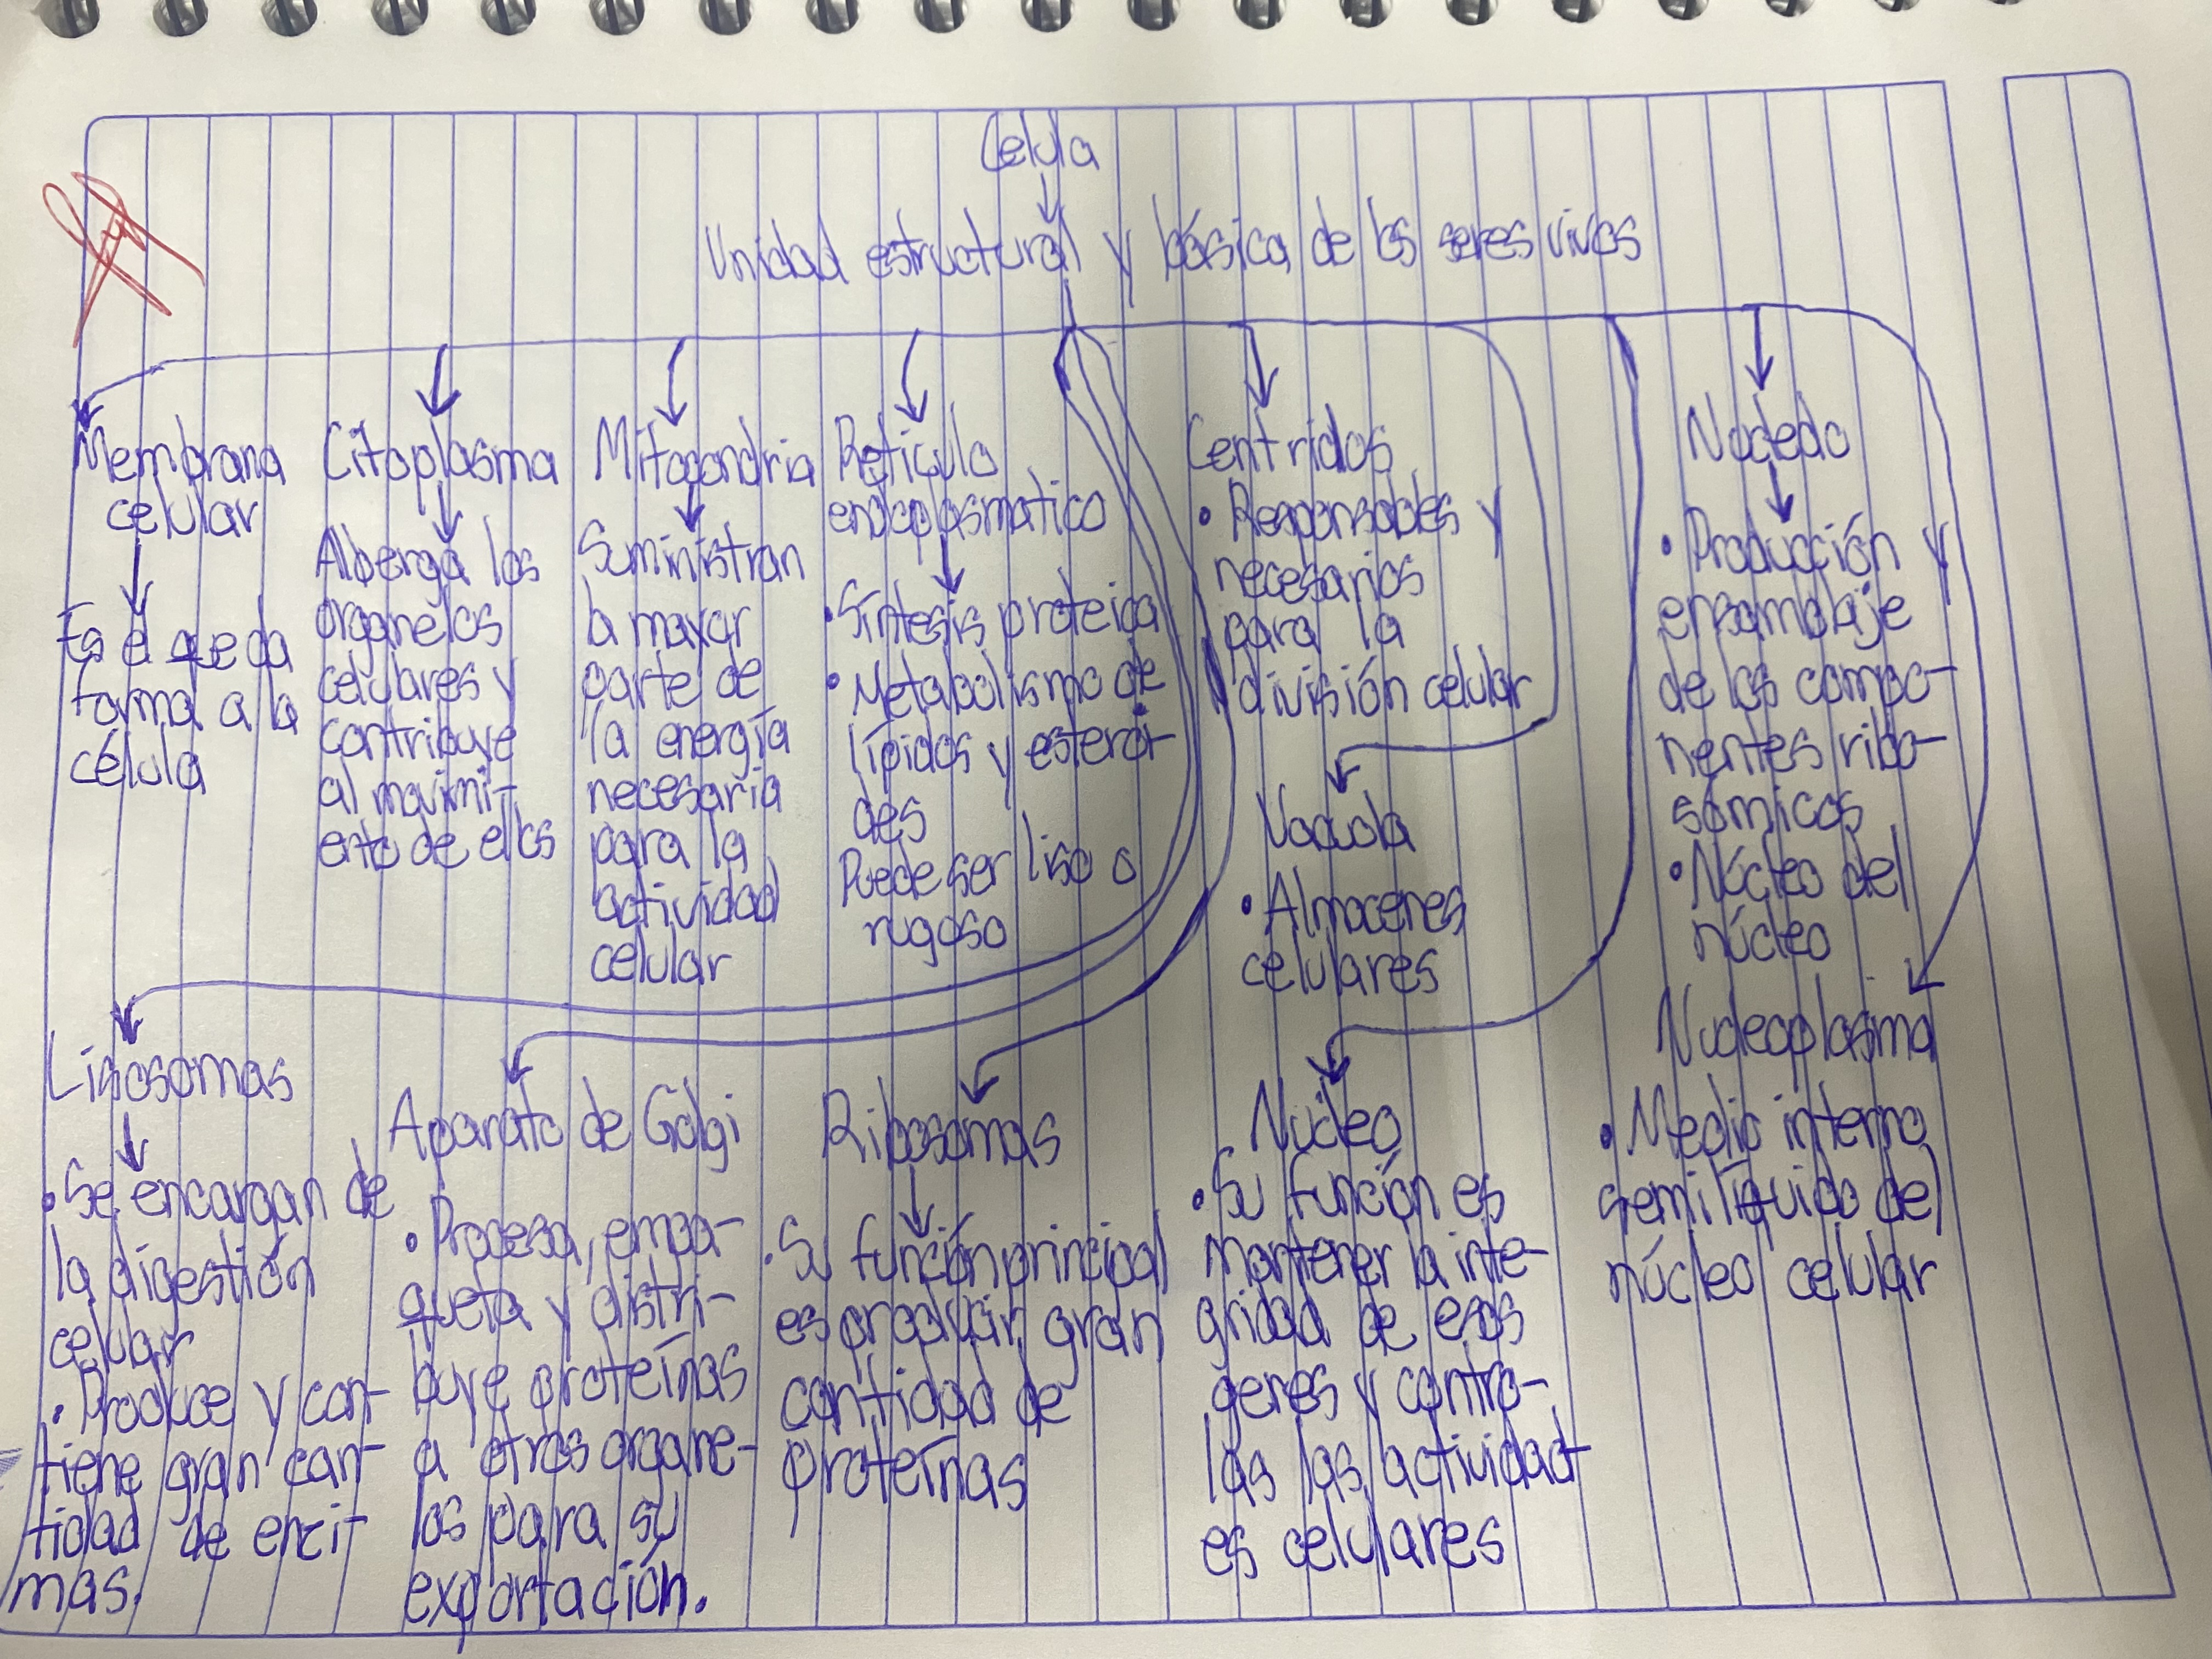 Celula
Unidad estructural y básica de los seres vivos
Membrana
celular
Es el que da
forma a la
célula
Citoplasma
Alberga los
organelos
celulares y
contribuye
al movimi-
ento de ellos
Mitocondria
Suministran
la mayor
parte de
la energía
necesaria
para la
actividad
celular
Reticulo
endoplasmatico
• Síntesis proteica
• Metabolismo de
lípidos y esteroi-
des
Puede ser liso o
rugoso
Centriolos
• Responsables y
necesarios
para la
división celular
Vacuola
• Almacenes
celulares
Nucleolo
• Producción y
ensamblaje
de los compo-
nentes ribo-
sómicos
• Núcleo del
núcleo
Lisosomas
• Se encargan de
la digestión
celular
• Produce y con-
tiene gran can-
tidad de enci-
mas.
Aparato de Golgi
• Procesa, empa-
queta y distri-
buye proteínas
a otros organe-
los para su
exportación.
Ribosomas
• Su función principal
es producir gran
cantidad de
proteínas
Nucleo
• Su función es
mantener la inte-
gridad de esos
genes y contro-
las las actividad-
es celulares
Nucleoplasma
• Medio interno
semilíquido del
núcleo celular